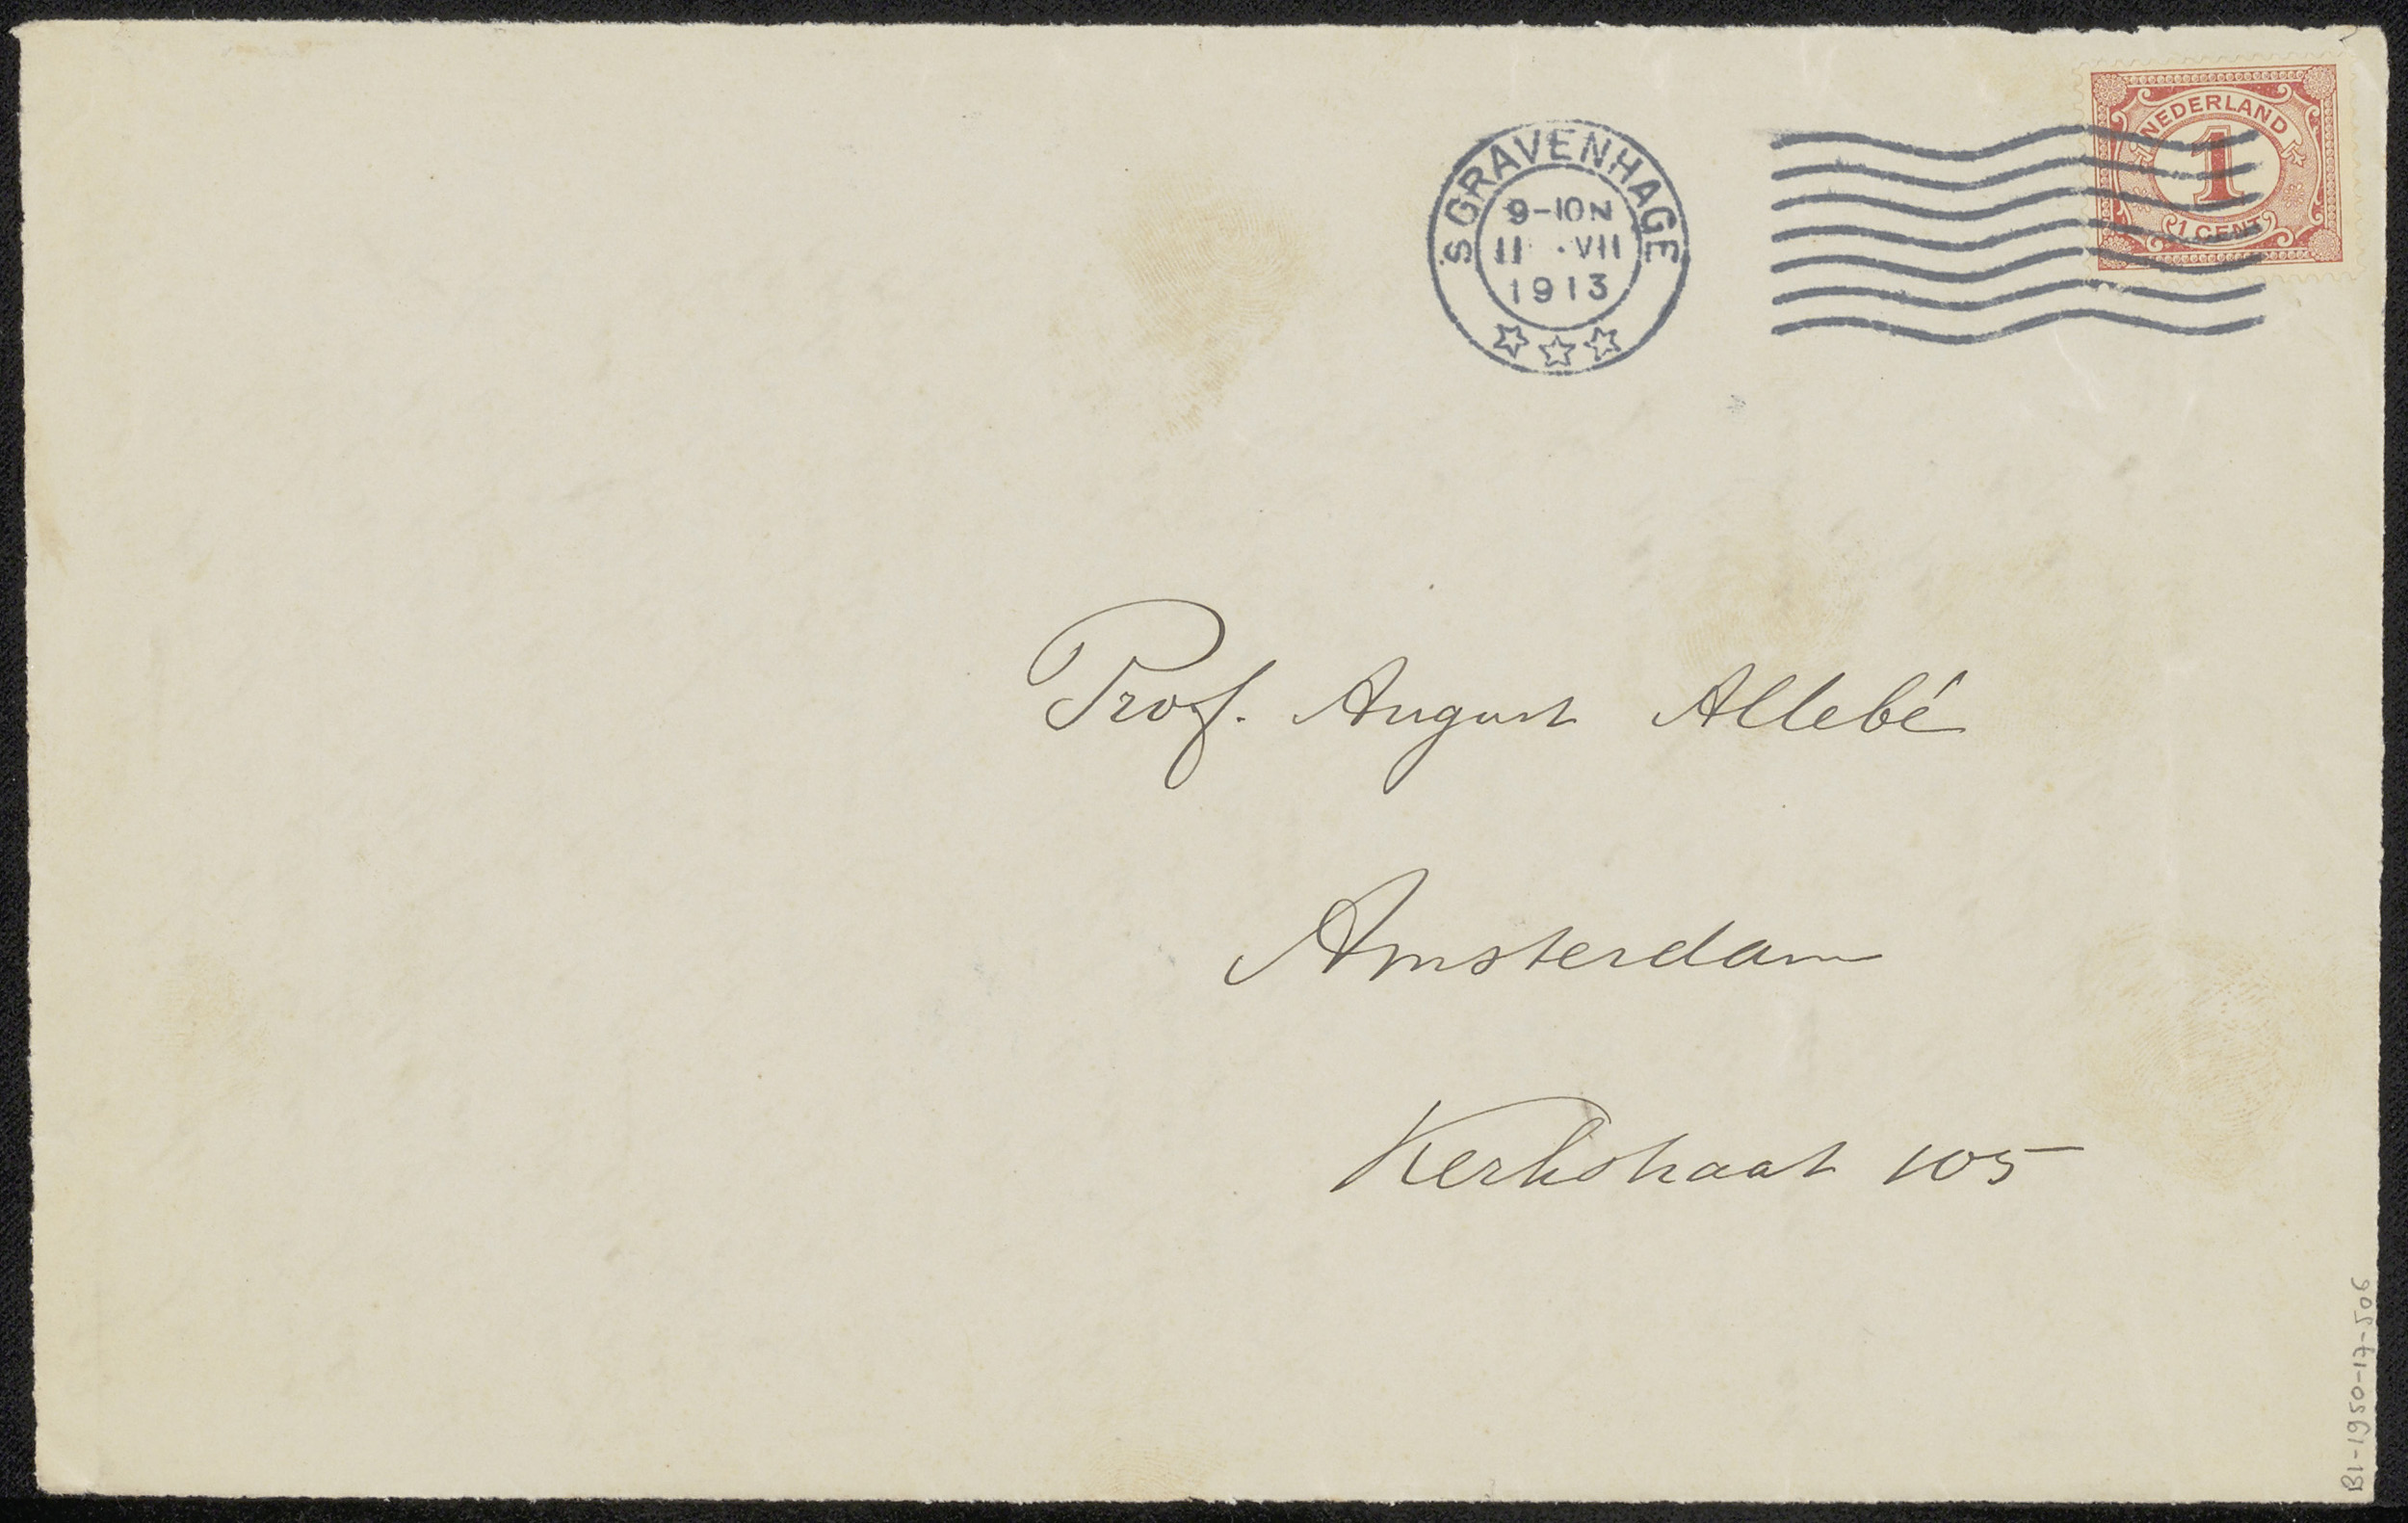 'S GRAVENHAGE
9-10 N
11 .VII
1913
NEDERLAND
1
1 CENT
Prof. August Allebé
Amsterdam
Kerkstraat 105
BI-1950-17-506